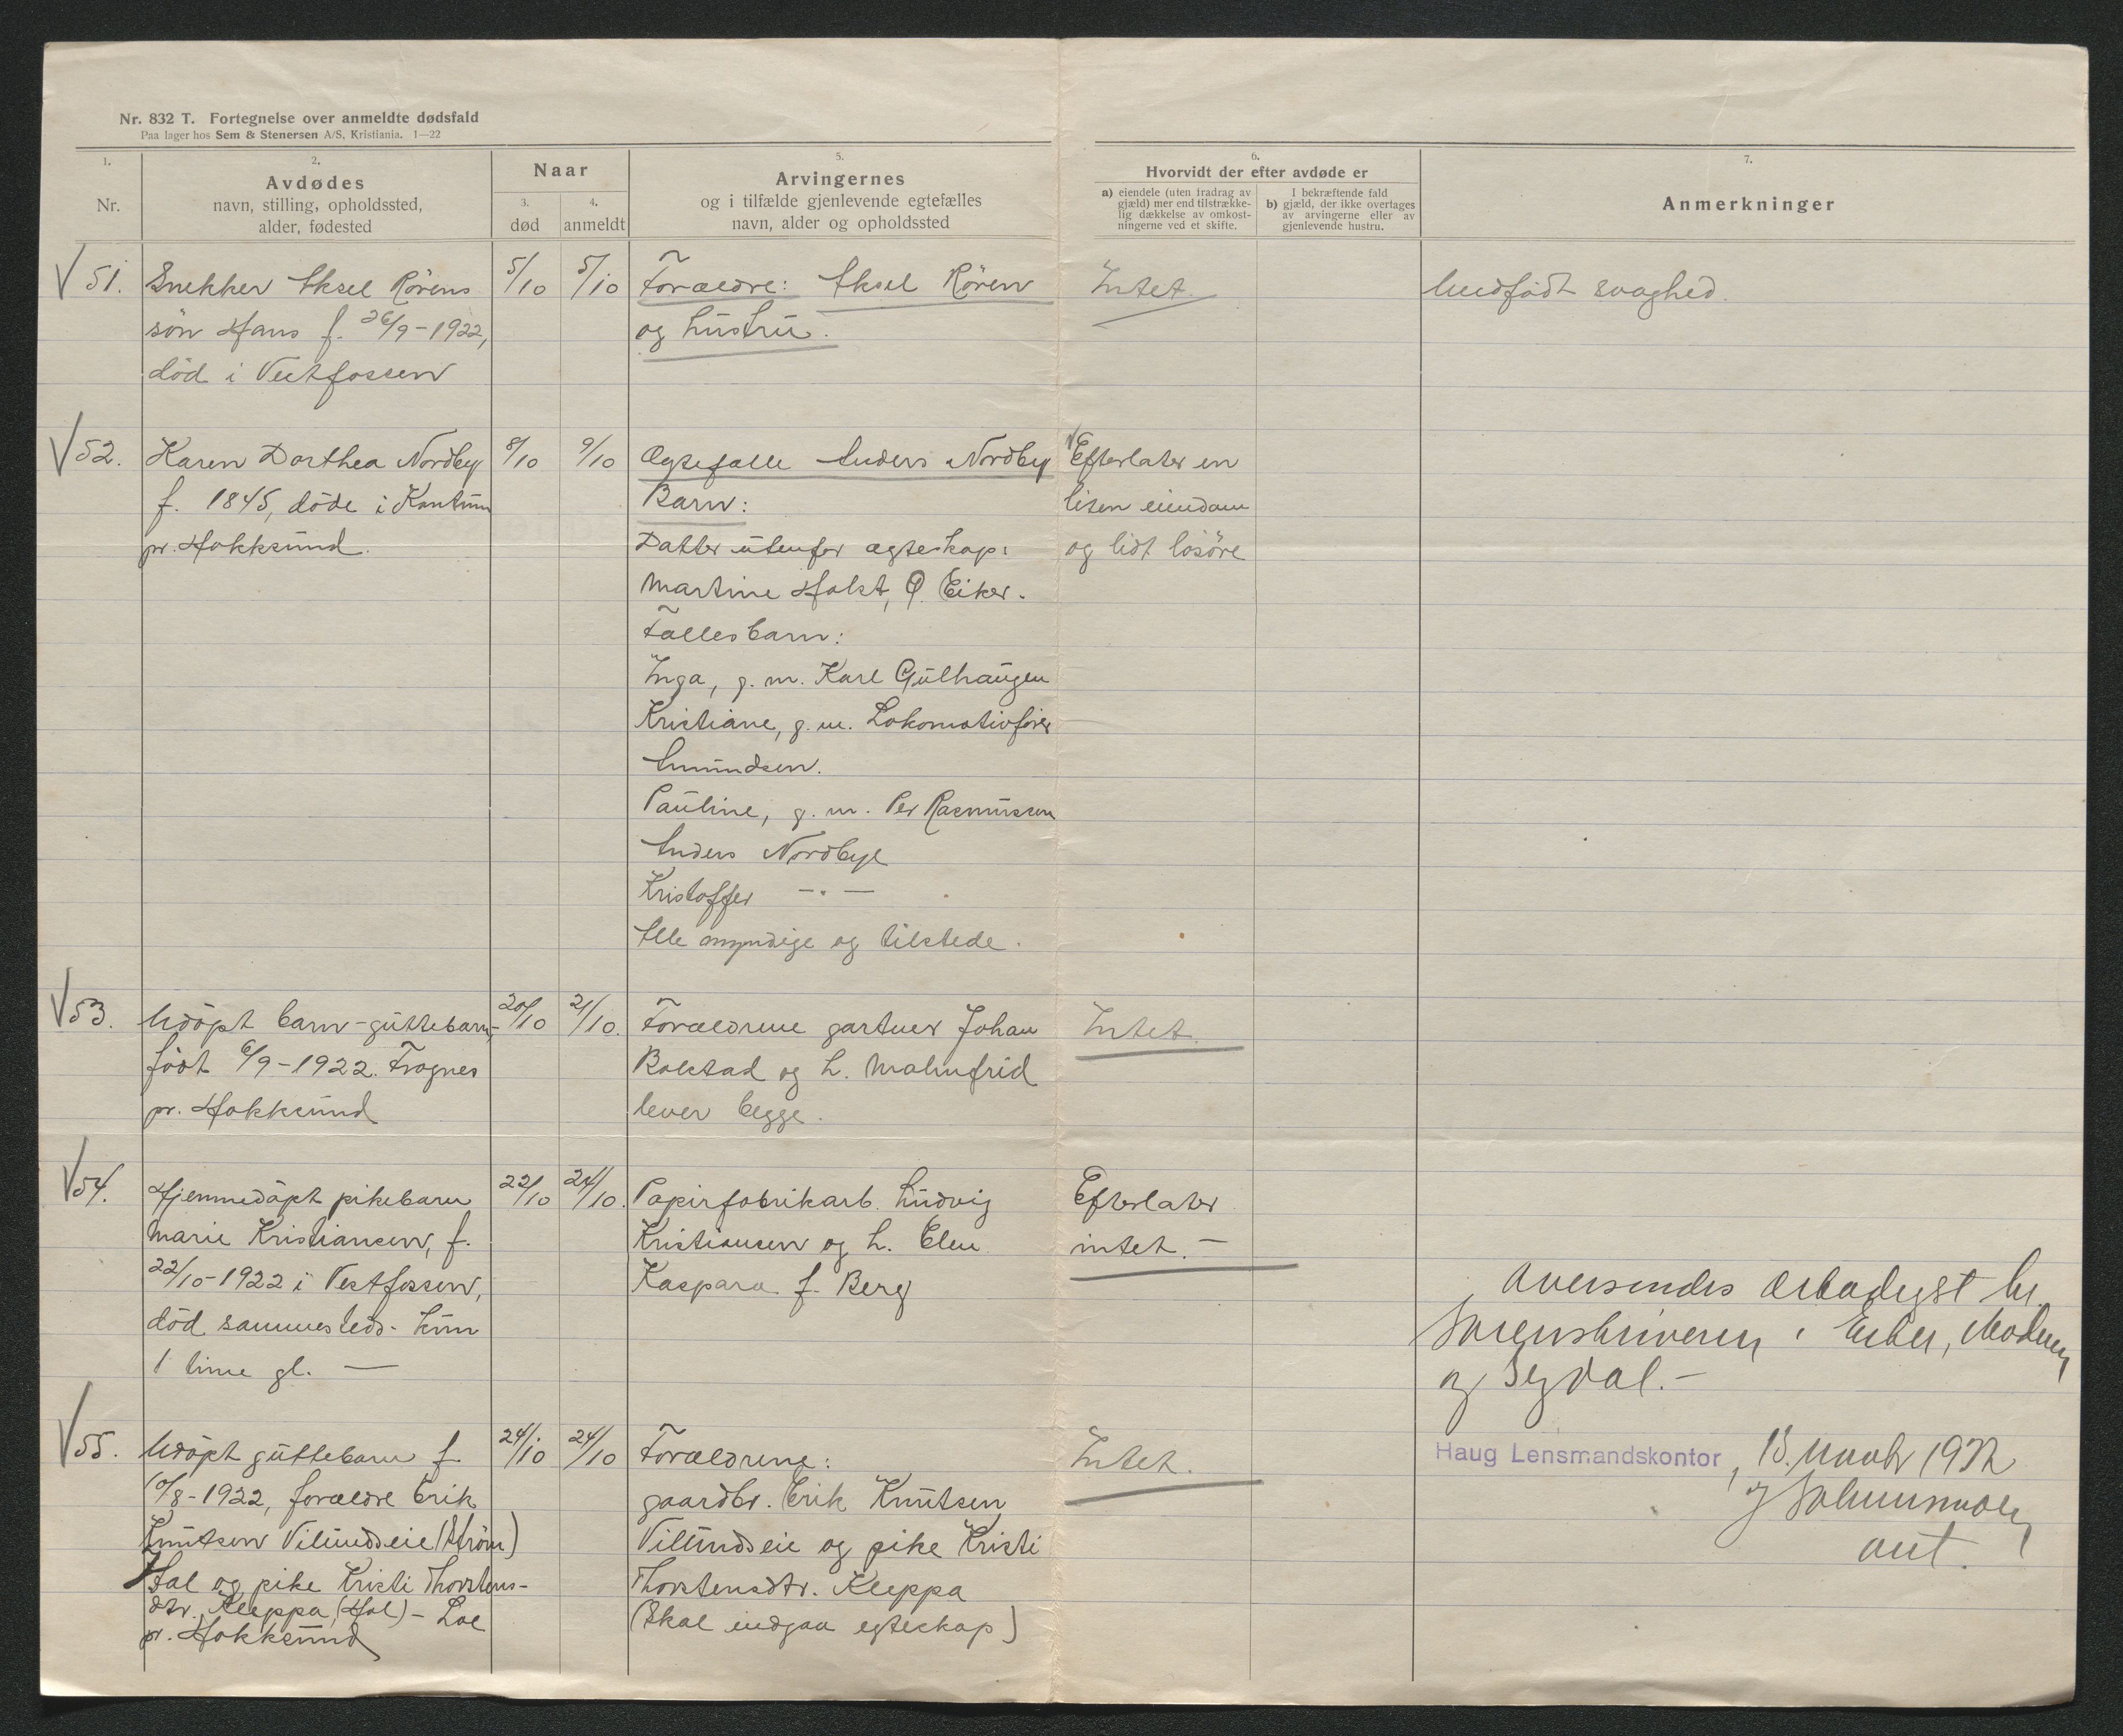 Nr. 832 T. Fortegnelse over anmeldte dødsfald
Paa lager hos Sem & Stenersen A/S, Kristiania. 1—22
1.
Nr.
2.
Avdødes
navn, stilling, opholdssted,
alder, fødested
Naar
3.
død
4.
anmeldt
5.
Arvingernes
og i tilfælde gjenlevende egtefælles
navn, alder og opholdssted
6.
Hvorvidt der efter avdøde er
a) eiendele (uten fradrag av
gjæld) mer end tilstrække-
lig dækkelse av omkost-
ningerne ved et skifte.
I bekræftende fald
b) gjæld, der ikke overtages
av arvingerne eller av
gjenlevende hustru.
7.
Anmerkninger
51. Snekker Aksel Rörens
sön Hans f. 26/9-1922,
död i Vestfossen
5/10 5/10
Foræoldre: Aksel Rören
og hustru.
Intet.
Medfödt svaghed.
52. Karen Dorthea Nordby
f. 1845, döde i Kantum
pr. Hokksund.
8/10 9/10
Ægtefælle Anders Nordby
Barn:
Datter utenfor ægteskap:
Martine Holst, Ö. Eiker.
Fællesbarn:
Inga, g. m. Karl Gulhaugen
Kristiane, g. m. Lokomotivförer
Amundsen.
Pauline, g. m. Per Rasmussen
Anders Nordbye
Kristoffer —"—
Alle myndige og tilstede.
Efterlater en
liten eiendom
og lidt lösöre
53. Udöpt barn - guttebarn,
födt 6/9-1922. Frognes
pr. Hokksund
20/10 21/10.
Forældrene gartner Johan
Bolstad og h. Malmfrid
lever begge.
Intet.
54. Hjemmedöpt pikebarn
Marie Kristiansen, f.
22/10-1922 i Vestfossen,
död sammesteds. Kun
1 time gl. —
22/10 24/10.
Papirfabrikarb. Ludvig
Kristiansen og h. Elen
Kaspara f. Berg
Efterlater
intet. —
55. Udöpt guttebarn f.
10/8-1922, forældre Erik
Knutsen Vilundseie (Ström)
Hal og pike Kristi Thorstens-
dtr. Kleppa (Hol) - Loe
pr. Hokksund
24/10 24/10
Forældrene:
gaardbr. Erik Knutsen
Vilundseie og pike Kristi
Thorstensdtr. Kleppa
(Skal indgaa egteskap)
Intet.
Oversendes ærbødigst hr.
Sorenskriveren i Eiker, Modum
og Sigdal.—
Haug Lensmandskontor, 13. novbr 1922
ant.